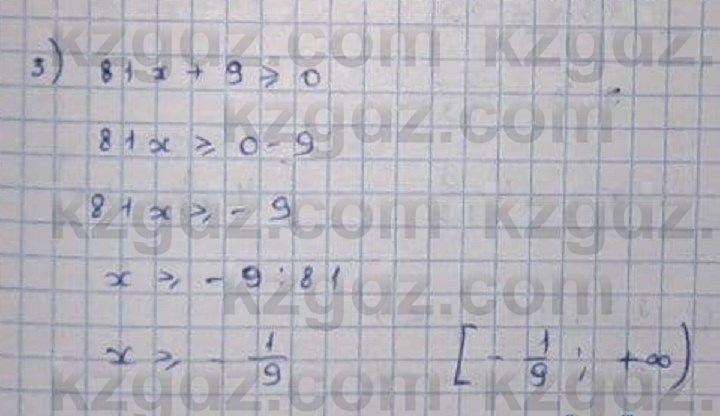 3) 81x + 9 ⩾ 0
81x ⩾ 0 - 9
81x ⩾ - 9
x ⩾ - 9 : 81
x ⩾ - 1/9 [ - 1/9 ; +∞)
kzgdz.com kzgdz.com
kzgdz.com
kzgdz.com kzgdz.com
kzgdz.com
kzgdz.com kzgdz.com